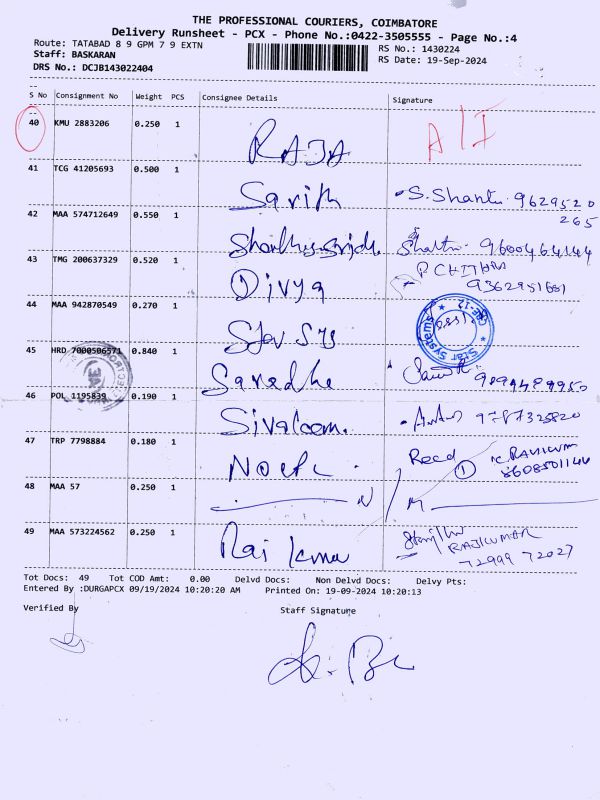 THE PROFESSIONAL COURIERS, COIMBATORE
Delivery Runsheet - PCX - Phone No.:0422-3505555 - Page No.:4
Route: TATABAD 8 9 GPM 7 9 EXTN
RS No.: 1430224
Staff: BASKARAN
RS Date: 19-Sep-2024
DRS No.: DCJB143022404
S No Consignment No Weight PCS Consignee Details Signature
40 KMU 2883206 0.250 1 RAJA
41 TCG 41205693 0.500 1 Sarith S. Shanti 9629520
265
42 MAA 574712649 0.550 1 9600464144
43 TMG 200637329 0.520 1 Divya P. CHITHRA
9362951681
44 MAA 942870549 0.270 1 Star Sys Star Systems CBE-12
45 HRD 7000506571 0.840 1 9894489950
46 POL 1195839 0.190 1 9787325820
47 TRP 7798884 0.180 1 Recd K. RAVIKUM
8608501144
48 MAA 57 0.250 1 N / M
49 MAA 573224562 0.250 1 Raj Kumar RAJKUMAR
72999 72027
Tot Docs: 49 Tot COD Amt: 0.00 Delvd Docs: Non Delvd Docs: Delvy Pts:
Entered By :DURGAPCX 09/19/2024 10:20:20 AM Printed On: 19-09-2024 10:20:13
Verified By Staff Signature